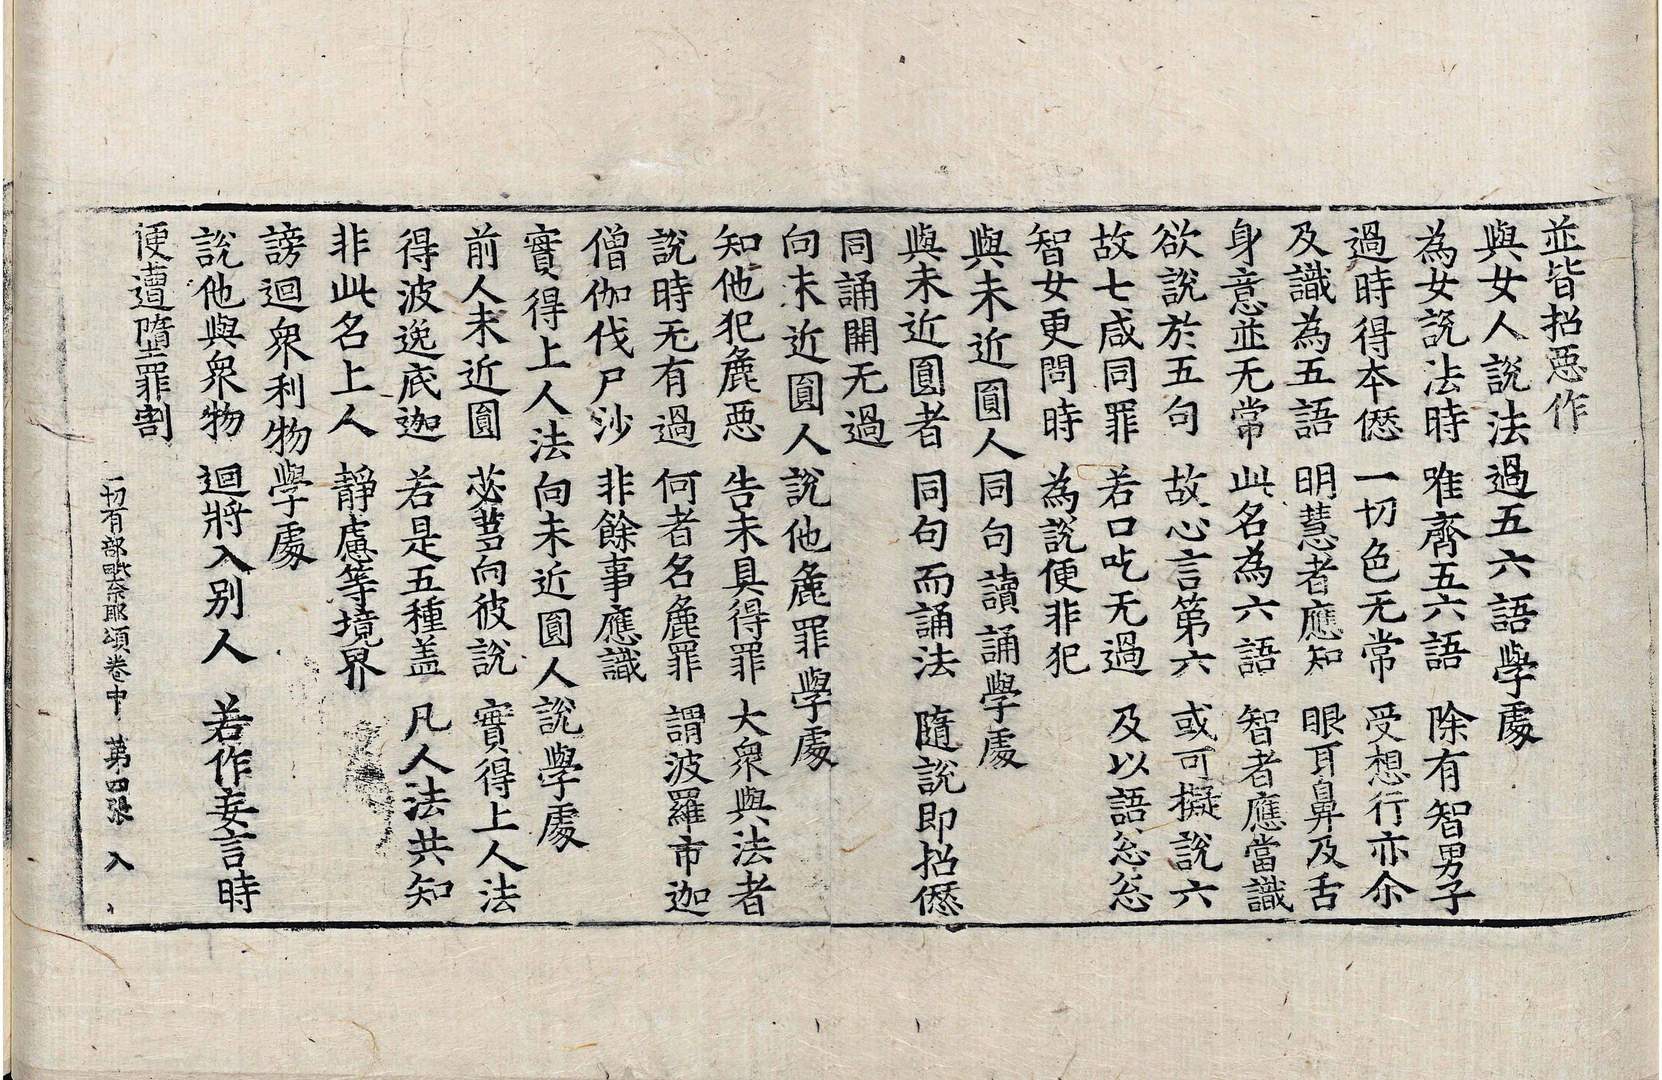 並皆招惡作
與女人說法過五六語學處
為女說法時 唯齊五六語 除有智男子
過時得本愆 一切色无常 受想行亦尒
及識為五語 明慧者應知 眼耳鼻及舌
身意並无常 此名為六語 智者應當識
欲說於五句 故心言第六 或可擬說六
故七咸同罪 若口吃无過 及以語忩忩
智女更問時 為說便非犯
與未近圓人同句讀誦學處
與未近圓者 同句而誦法 隨說即招愆
同誦開无過
向未近圓人說他麁罪學處
知他犯麁惡 告未具得罪 大衆與法者
說時无有過 何者名麁罪 謂波羅市迦
僧伽伐尸沙 非餘事應識
實得上人法向未近圓人說學處
前人未近圓 苾芻向彼說 實得上人法
得波逸底迦 若是五種盖 凡人法共知
非此名上人 靜慮等境界
謗迴衆利物學處
說他與衆物 迴將入別人 若作妄言時
便遭墮罪割
一切有部毗奈耶頌卷中 第四張 入